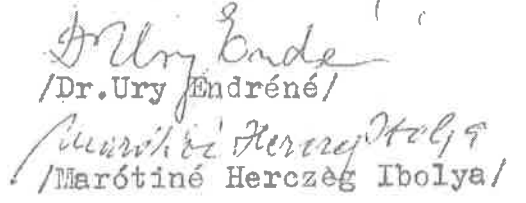 Dr Ury Endré
/Dr.Ury Endréné/
Marótiné Herczeg Ibolya
/Marótiné Herczèg Ibolya/